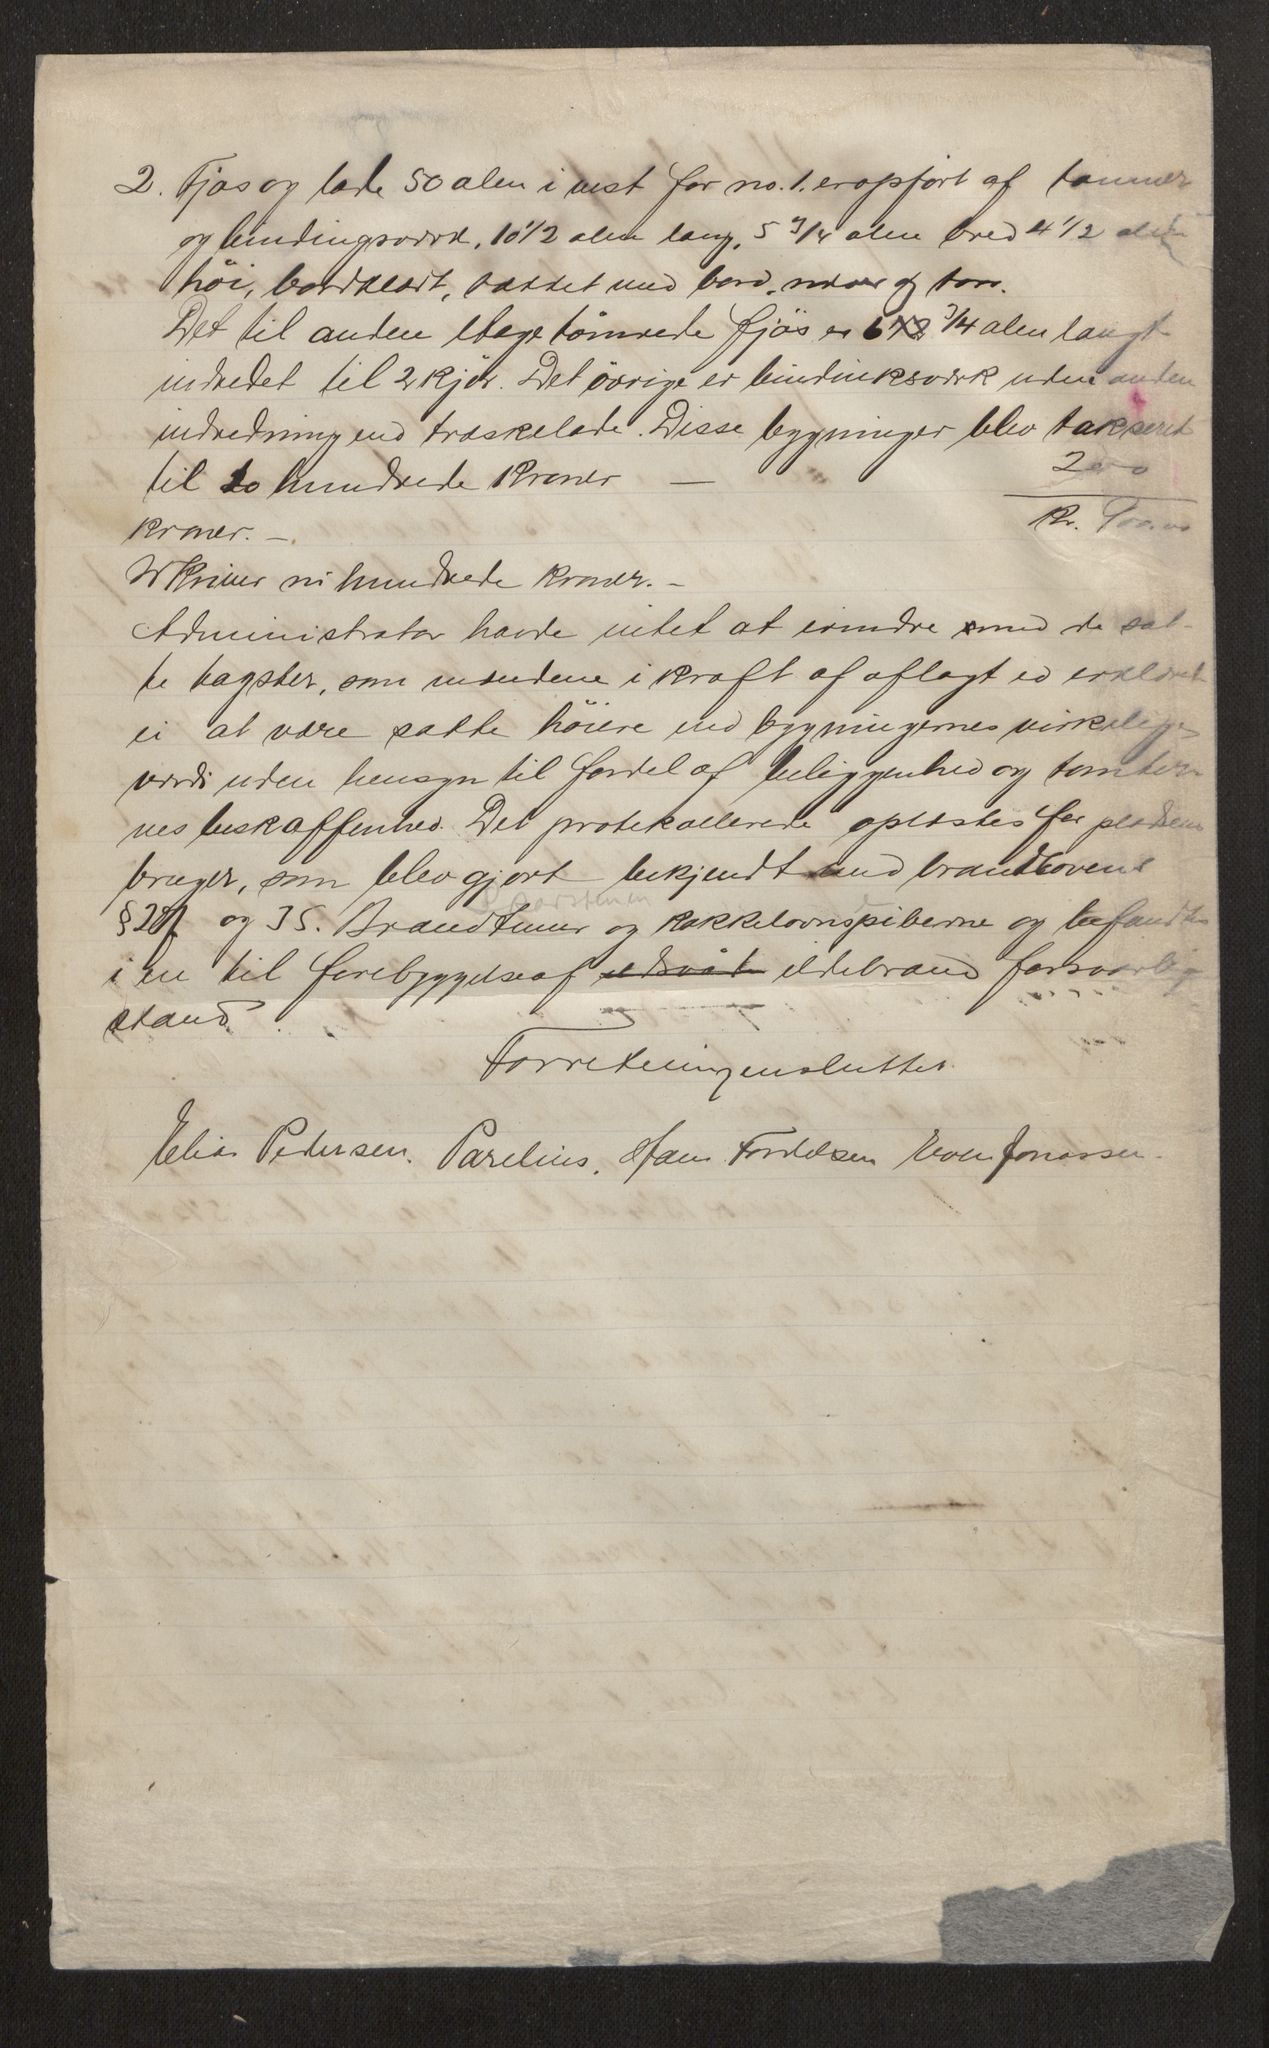 2. Fjøs og lade 50 alen i vest for no. 1. er opført af tømmer
og bindingsværk, 10 1/2 alen lang, 5 3/4 alen bred 4 1/2 alen
höi, bordklædt, tækket med bord, næver og torv.
Det til anden etage tömrede fjös er 6 3/4 alen langt
indredet til 2 kjör. Det övrige er bindinksværk uden anden
indredning end træskelade. Disse bygninger blev takseret
til to hundrede kroner — 200
kroner. — Kr. 900.00
skriver ni hundrede kroner. —
Administrator havde intet at erindre mod de sat-
te tagster, som mændene i kraft af aflagt ed erklæret
ei at være satte höiere end bygningernes virkelige
værdi uden hensyn til fordel af beliggenhed og tomter-
nes beskaffenhed. Det protokollerede oplæstes for pladsens
bruger, som blev gjort bekjendt med brandlovens
§ 28 og 35. Brandmur og kakkelovnspiberne og befandtes
i en til forebyggelse af ildebrand forsvarlig
stand.
Forretningen sluttet.
Elias Pedersen. Parelius. Hans Tordelsen Even Jonassen.